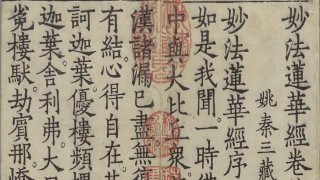 妙法蓮華經卷
姚秦三藏
妙法蓮華經序
如是我聞一時佛
中與大比丘衆
漢諸漏已盡無復
有結心得自在其
訶迦葉優樓頻螺
迦葉舍利弗大目
冕樓馱劫賓那憍